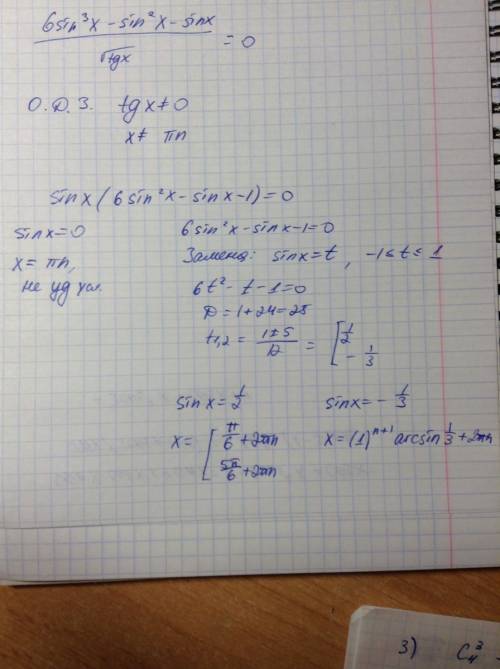 6sin³x - sin²x - sinx
――――――――― = 0
√tgx
О.Д.З. tg x ≠ 0
x ≠ πn
sinx (6sin²x - sinx - 1) = 0
sinx = 0
x = πn,
не уд усл.
6sin²x - sinx - 1 = 0
Замена: sinx = t, -1 ≤ t ≤ 1
6t² - t - 1 = 0
D = 1 + 24 = 25
t₁,₂ = (1 ± 5)/12 = [ 1/2
- 1/3
sinx = 1/2
x = [ π/6 + 2πn
5π/6 + 2πn
sinx = - 1/3
x = (1)ⁿ⁺¹ arcsin 1/3 + 2πn
3) C₄³